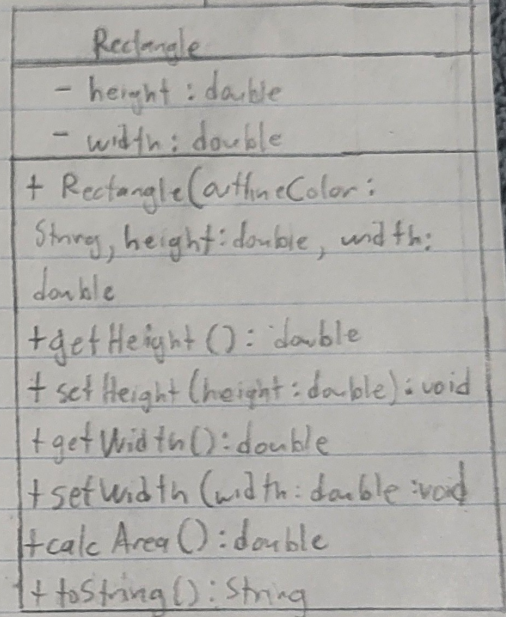 Rectangle
- height : double
- width : double
+ Rectangle(outlineColor :
String, height : double, width :
double
+ getHeight() : double
+ setHeight(height : double) : void
+ getWidth() : double
+ setWidth(width : double : void
+ calcArea() : double
+ toString() : String